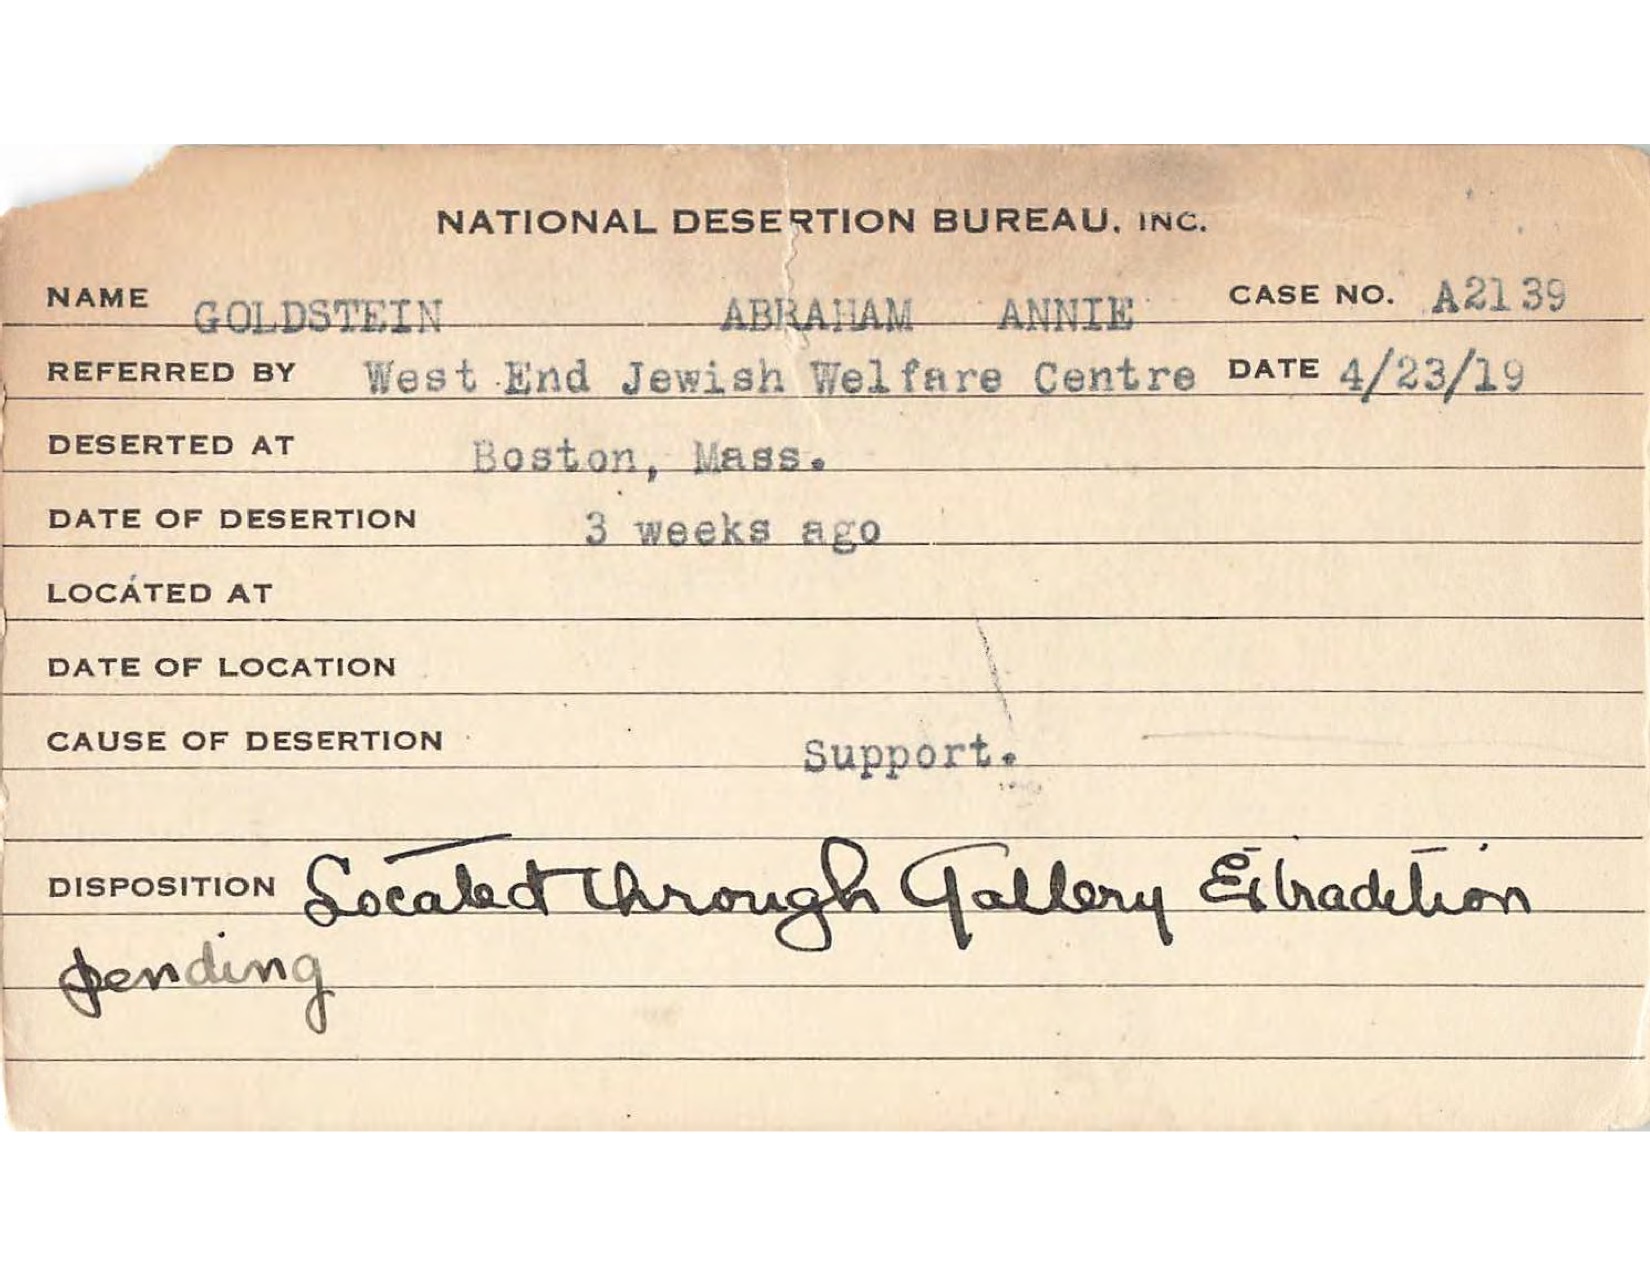 NATIONAL DESERTION BUREAU, INC.
NAME GOLDSTEIN ABRAHAM ANNIE CASE NO. A2139
REFERRED BY West End Jewish Welfare Centre DATE 4/23/19
DESERTED AT Boston, Mass.
DATE OF DESERTION 3 weeks ago
LOCATED AT
DATE OF LOCATION
CAUSE OF DESERTION Support.
DISPOSITION Located through Gallery Extradition
pending